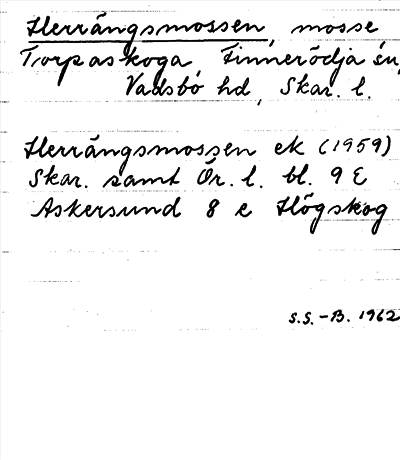 Herrängsmossen, mosse
Torpaskoga Finnerödja sn,
Vadsbo hd, Skar. l.
Herrängsmossen ek (1959)
Skar. samt Ör. l. bl. 9 E
Askersund 8 e Högskog
S.S.-B. 1962